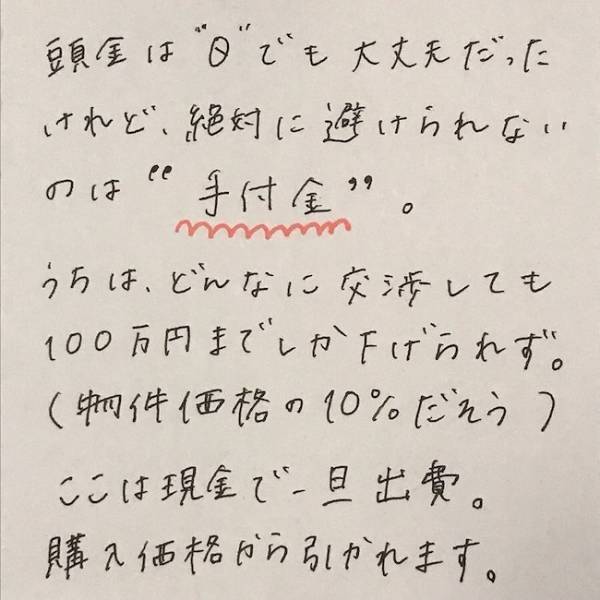 頭金は"0"でも大丈夫だった
けれど、絶対に避けられない
のは"手付金"。
うちは、どんなに交渉しても
100万円までしか下げられず。
(物件価格の10%だそう)
ここは現金で一旦出費。
購入価格から引かれます。